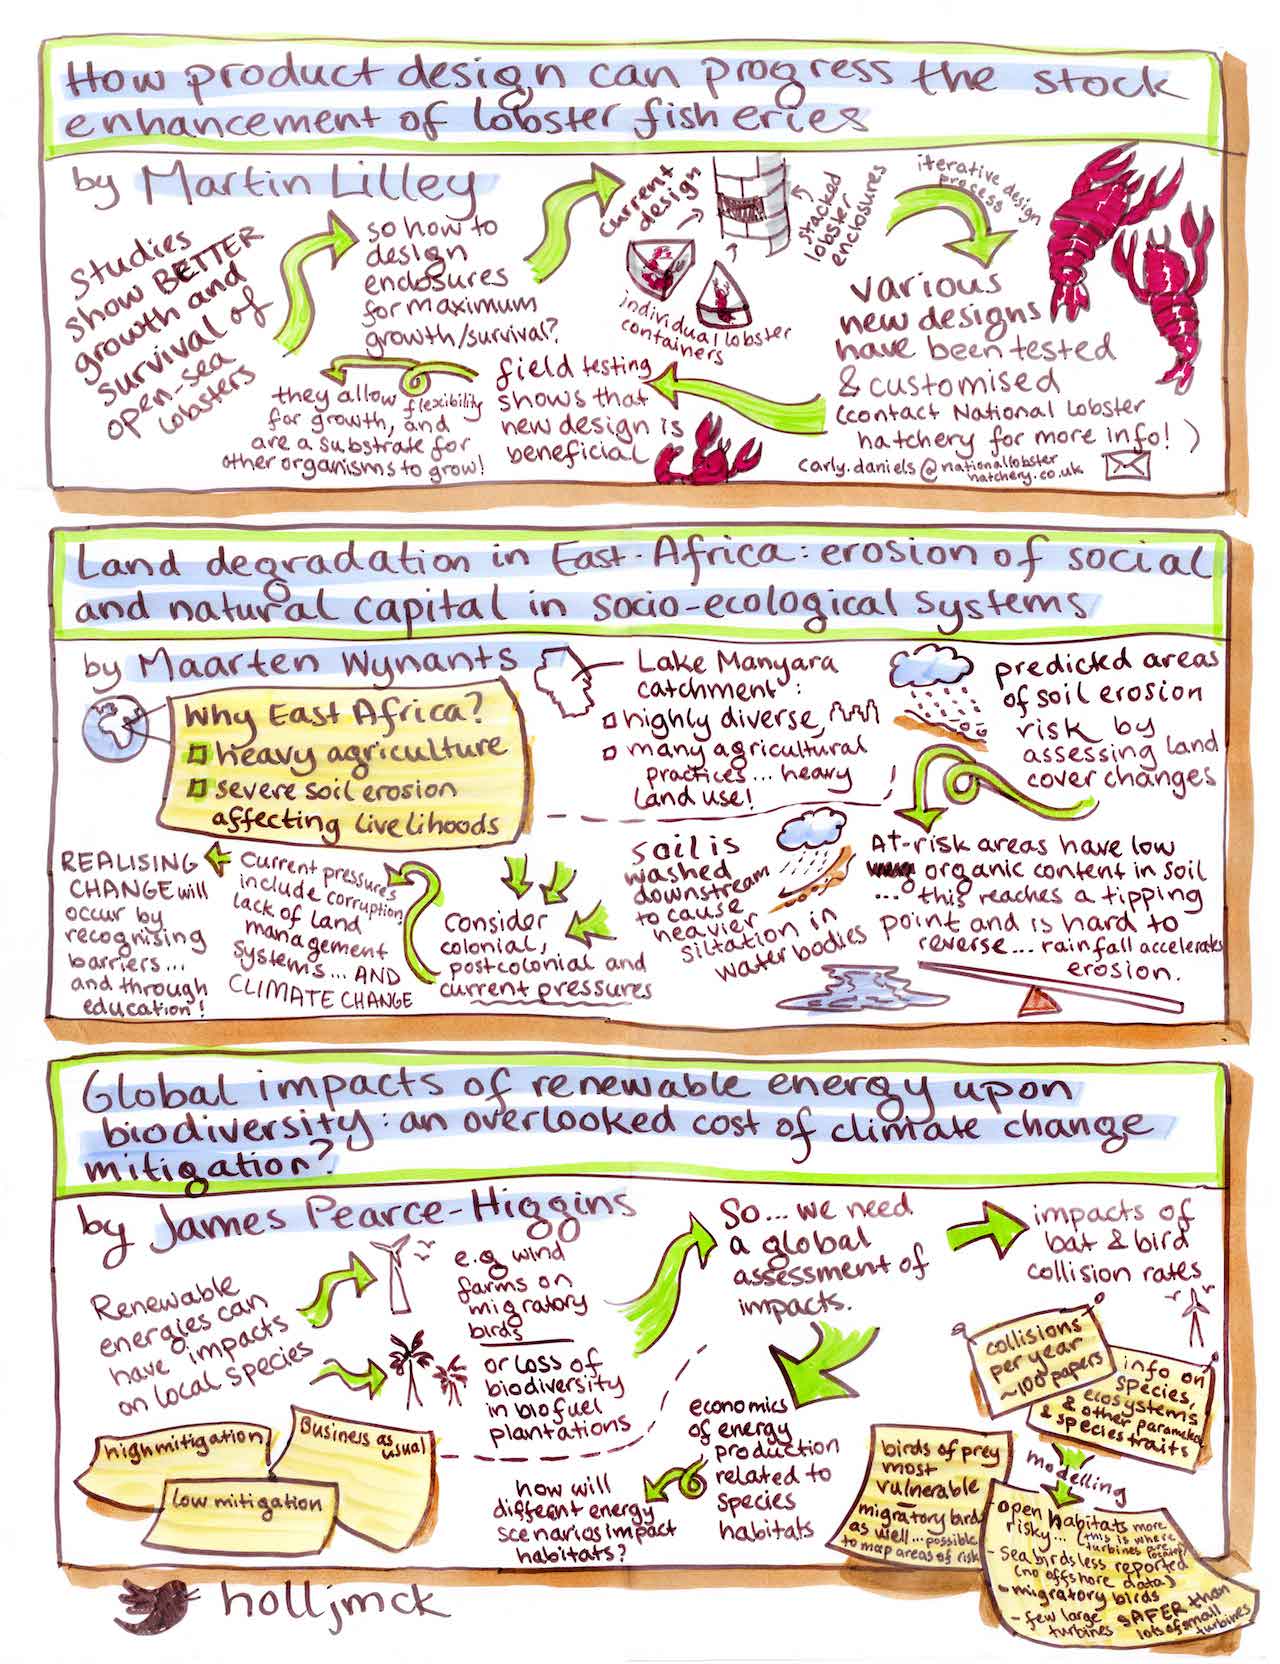 How product design can progress the stock
enhancement of lobster fisheries
by Martin Lilley
Studies
show BETTER
growth and
survival of
open-sea
lobsters
so how to
design
enclosures
for maximum
growth/survival?
current
design
individual lobster
containers
stacked
lobster
enclosures
iterative design
process
various
new designs
have been tested
& customised
(contact National Lobster
hatchery for more info!)
carly.daniels@nationallobster
hatchery.co.uk
field testing
shows that
new design is
beneficial
they allow flexibility
for growth, and
are a substrate for
other organisms to grow!
Land degradation in East Africa: erosion of social
and natural capital in socio-ecological systems
by Maarten Wynants
Why East Africa?
heavy agriculture
severe soil erosion
affecting livelihoods
Lake Manyara
catchment:
highly diverse,
many agricultural
practices... heavy
land use!
predicted areas
of soil erosion
risk by
assessing land
cover changes
At-risk areas have low
organic content in soil
... this reaches a tipping
point and is hard to
reverse... rainfall accelerates
erosion.
soil is
washed
downstream
to cause
heavier
siltation in
water bodies
Consider
colonial,
postcolonial and
current pressures
Current pressures
include corruption,
lack of land
management
systems... AND
CLIMATE CHANGE
REALISING
CHANGE will
occur by
recognising
barriers...
and through
education!
Global impacts of renewable energy upon
biodiversity: an overlooked cost of climate change
mitigation?
by James Pearce-Higgins
Renewable
energies can
have impacts
on local species
e.g wind
farms on
migratory
birds
or loss of
biodiversity
in biofuel
plantations
So... we need
a global
assessment of
impacts.
impacts of
bat & bird
collision rates
collisions
per year
~100 papers
info on
species,
ecosystems
& other parameters
& species traits
modelling
open habitats more
risky... (this is where
turbines are located)
- sea birds less reported
(no offshore data)
migratory birds
- few large SAFER than
turbines lots of small
turbines
birds of prey
most
vulnerable
migratory birds
as well... possible
to map areas of risk
economics
of energy
production
related to
species
habitats
how will
different energy
scenarios impact
habitats?
high mitigation
Business as
usual
low mitigation
holljmck